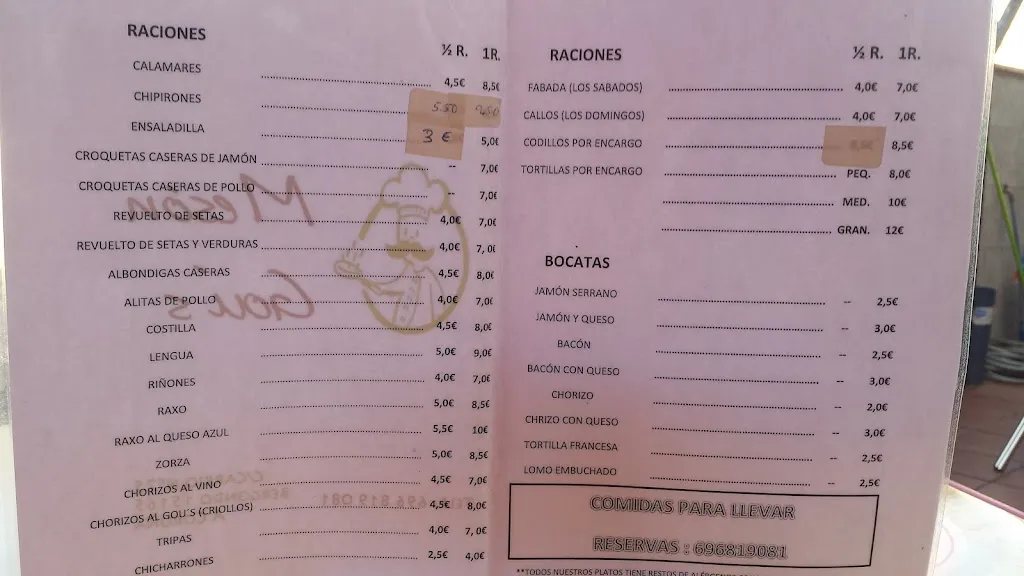 RACIONES
½ R. 1R.
CALAMARES 4,5€ 8,5€
CHIPIRONES 5.50
ENSALADILLA 3 € 5,0€
CROQUETAS CASERAS DE JAMÓN -- 7,0€
CROQUETAS CASERAS DE POLLO -- 7,0€
REVUELTO DE SETAS 4,0€ 7,0€
REVUELTO DE SETAS Y VERDURAS 4,0€ 7,0€
ALBONDIGAS CASERAS 4,5€ 8,0€
ALITAS DE POLLO 4,0€ 7,0€
COSTILLA 4,5€ 8,0€
LENGUA 5,0€ 9,0€
RIÑONES 4,0€ 7,0€
RAXO 5,0€ 8,5€
RAXO AL QUESO AZUL 5,5€ 10€
ZORZA 5,0€ 8,5€
CHORIZOS AL VINO 4,5€ 7,0€
CHORIZOS AL GOU´S (CRIOLLOS) 4,5€ 8,0€
TRIPAS 4,0€ 7,0€
CHICHARRONES 2,5€ 4,0€
Meson
Gou's
696 819 081
RACIONES ½ R. 1R.
FABADA (LOS SABADOS) 4,0€ 7,0€
CALLOS (LOS DOMINGOS) 4,0€ 7,0€
CODILLOS POR ENCARGO 8,5€
TORTILLAS POR ENCARGO PEQ. 8,0€
MED. 10€
GRAN. 12€
BOCATAS
JAMÓN SERRANO -- 2,5€
JAMÓN Y QUESO -- 3,0€
BACÓN -- 2,5€
BACÓN CON QUESO -- 3,0€
CHORIZO -- 2,0€
CHRIZO CON QUESO -- 3,0€
TORTILLA FRANCESA -- 2,5€
LOMO EMBUCHADO -- 2,5€
COMIDAS PARA LLEVAR
RESERVAS : 696819081
**TODOS NUESTROS PLATOS TIENE RESTOS DE